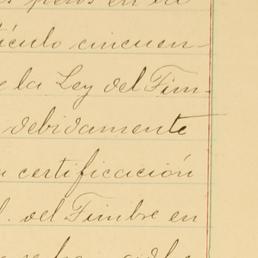 en la
tículo cincuen-
e la Ley del Tim-
debidamente
certificación
del Timbre en